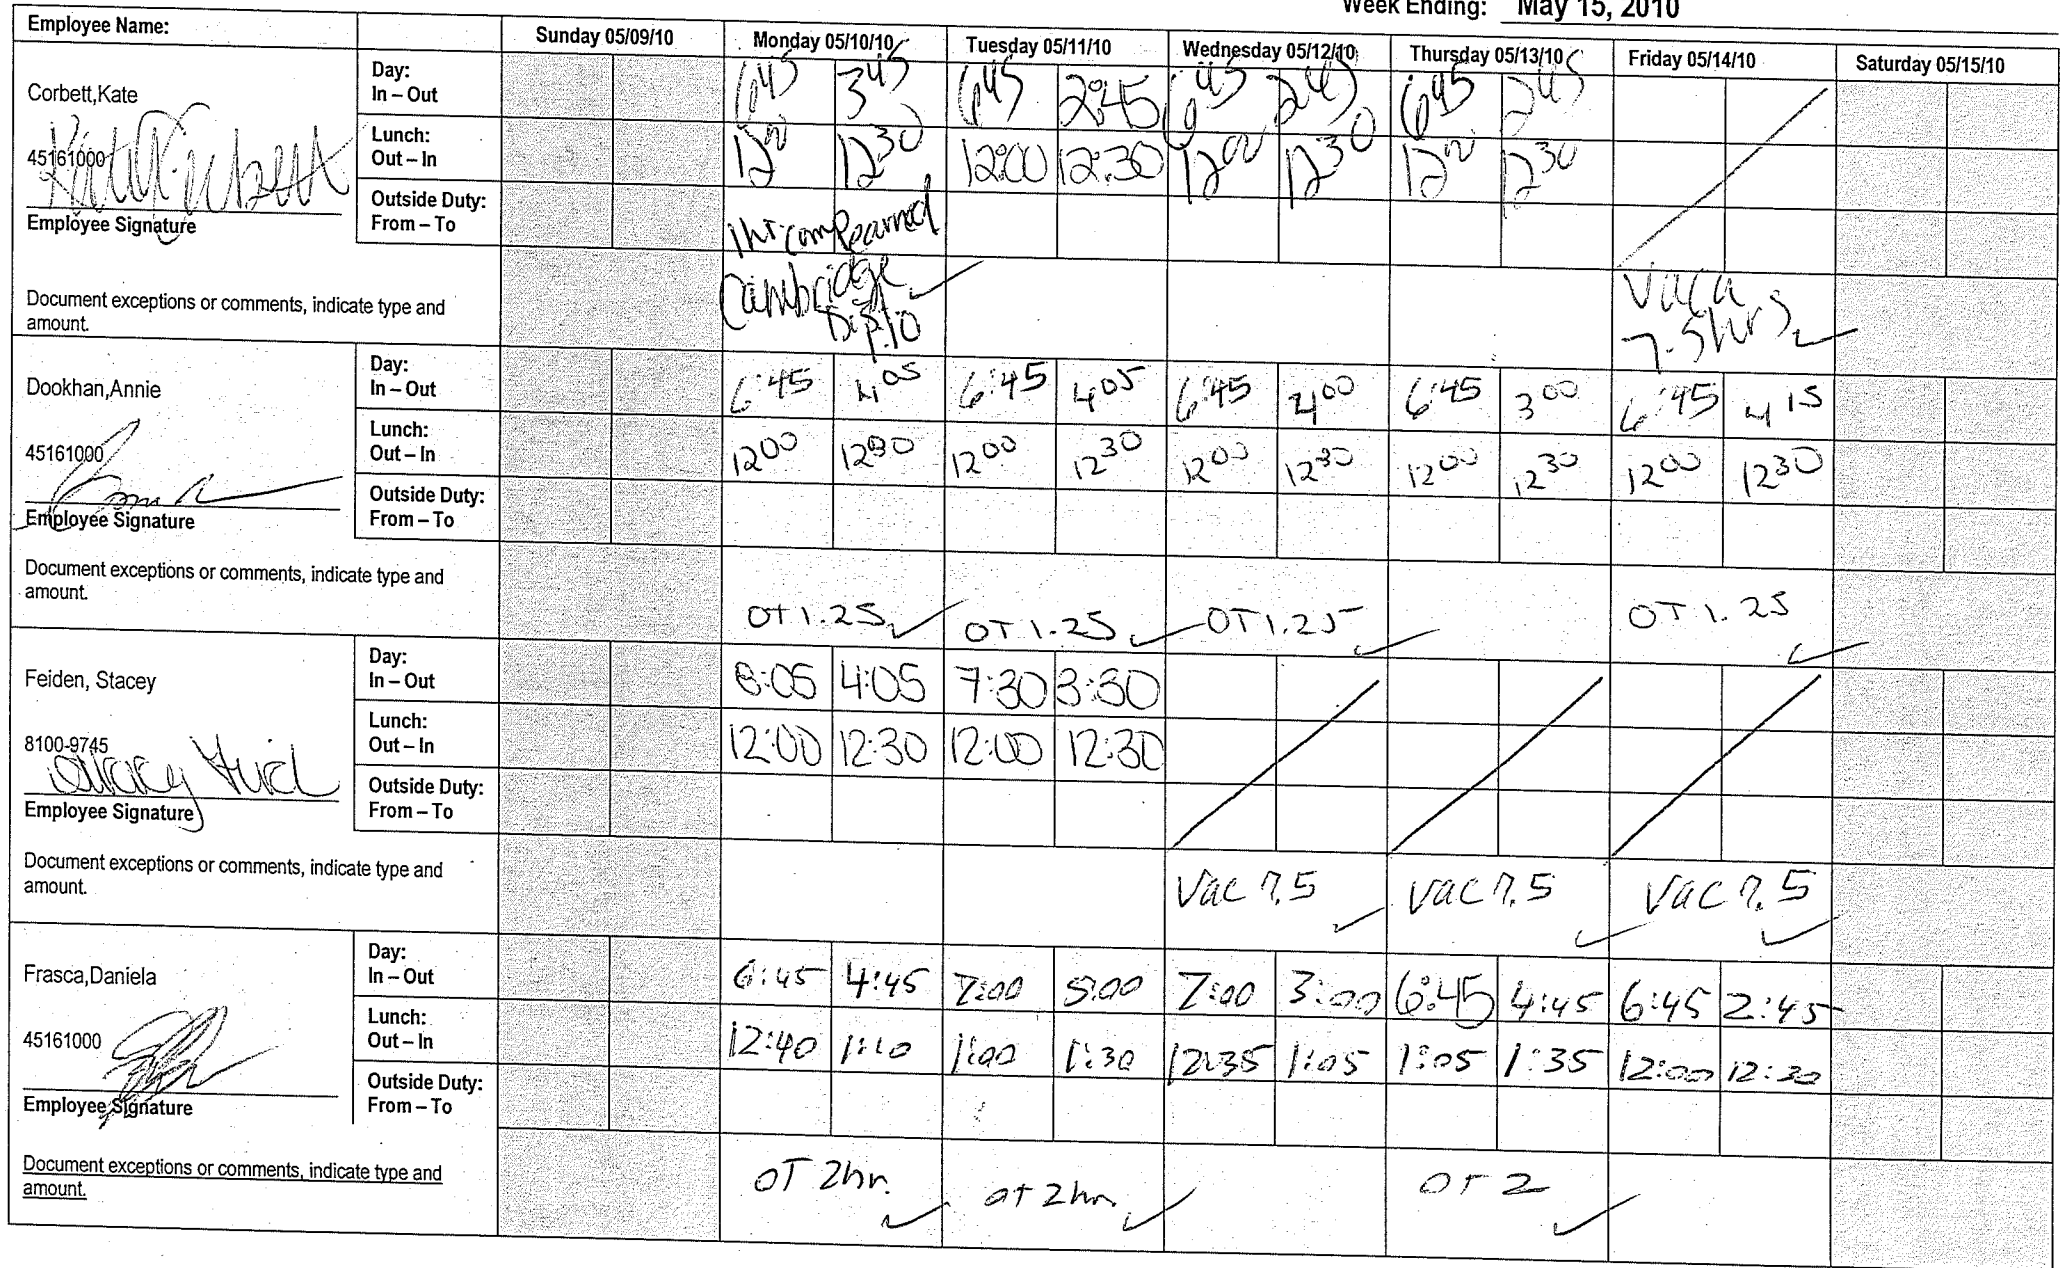 Week Ending: May 15, 2010
Employee Name: Sunday 05/09/10 Monday 05/10/10 Tuesday 05/11/10 Wednesday 05/12/10 Thursday 05/13/10 Friday 05/14/10 Saturday 05/15/10
Corbett,Kate
45161000
Employee Signature
Day:
In – Out 6:45 3:45 6:45 2:45 6:45 2:45 6:45 2:45
Lunch:
Out – In 12:00 12:30 12:00 12:30 12:00 12:30 12:00 12:30
Outside Duty:
From – To
Document exceptions or comments, indicate type and
amount.
1hr comp earned
Cambridge
Dip.10
Vaca
7.5hrs
Dookhan,Annie
45161000
Employee Signature
Day:
In – Out 6:45 4:05 6:45 4:05 6:45 4:00 6:45 3:00 6:45 4:15
Lunch:
Out – In 12:00 12:30 12:00 12:30 12:00 12:30 12:00 12:30 12:00 12:30
Outside Duty:
From – To
Document exceptions or comments, indicate type and
amount.
OT 1.25 OT 1.25 OT 1.25 OT 1.25
Feiden, Stacey
8100-9745
Employee Signature
Day:
In – Out 8:05 4:05 7:30 3:30
Lunch:
Out – In 12:00 12:30 12:00 12:30
Outside Duty:
From – To
Document exceptions or comments, indicate type and
amount.
Vac 7.5 Vac 7.5 Vac 7.5
Frasca,Daniela
45161000
Employee Signature
Day:
In – Out 6:45 4:45 7:00 5:00 7:00 3:00 6:45 4:45 6:45 2:45
Lunch:
Out – In 12:40 1:10 1:00 1:30 12:35 1:05 1:05 1:35 12:00 12:30
Outside Duty:
From – To
Document exceptions or comments, indicate type and
amount.
OT 2hr. OT 2hr. OT 2